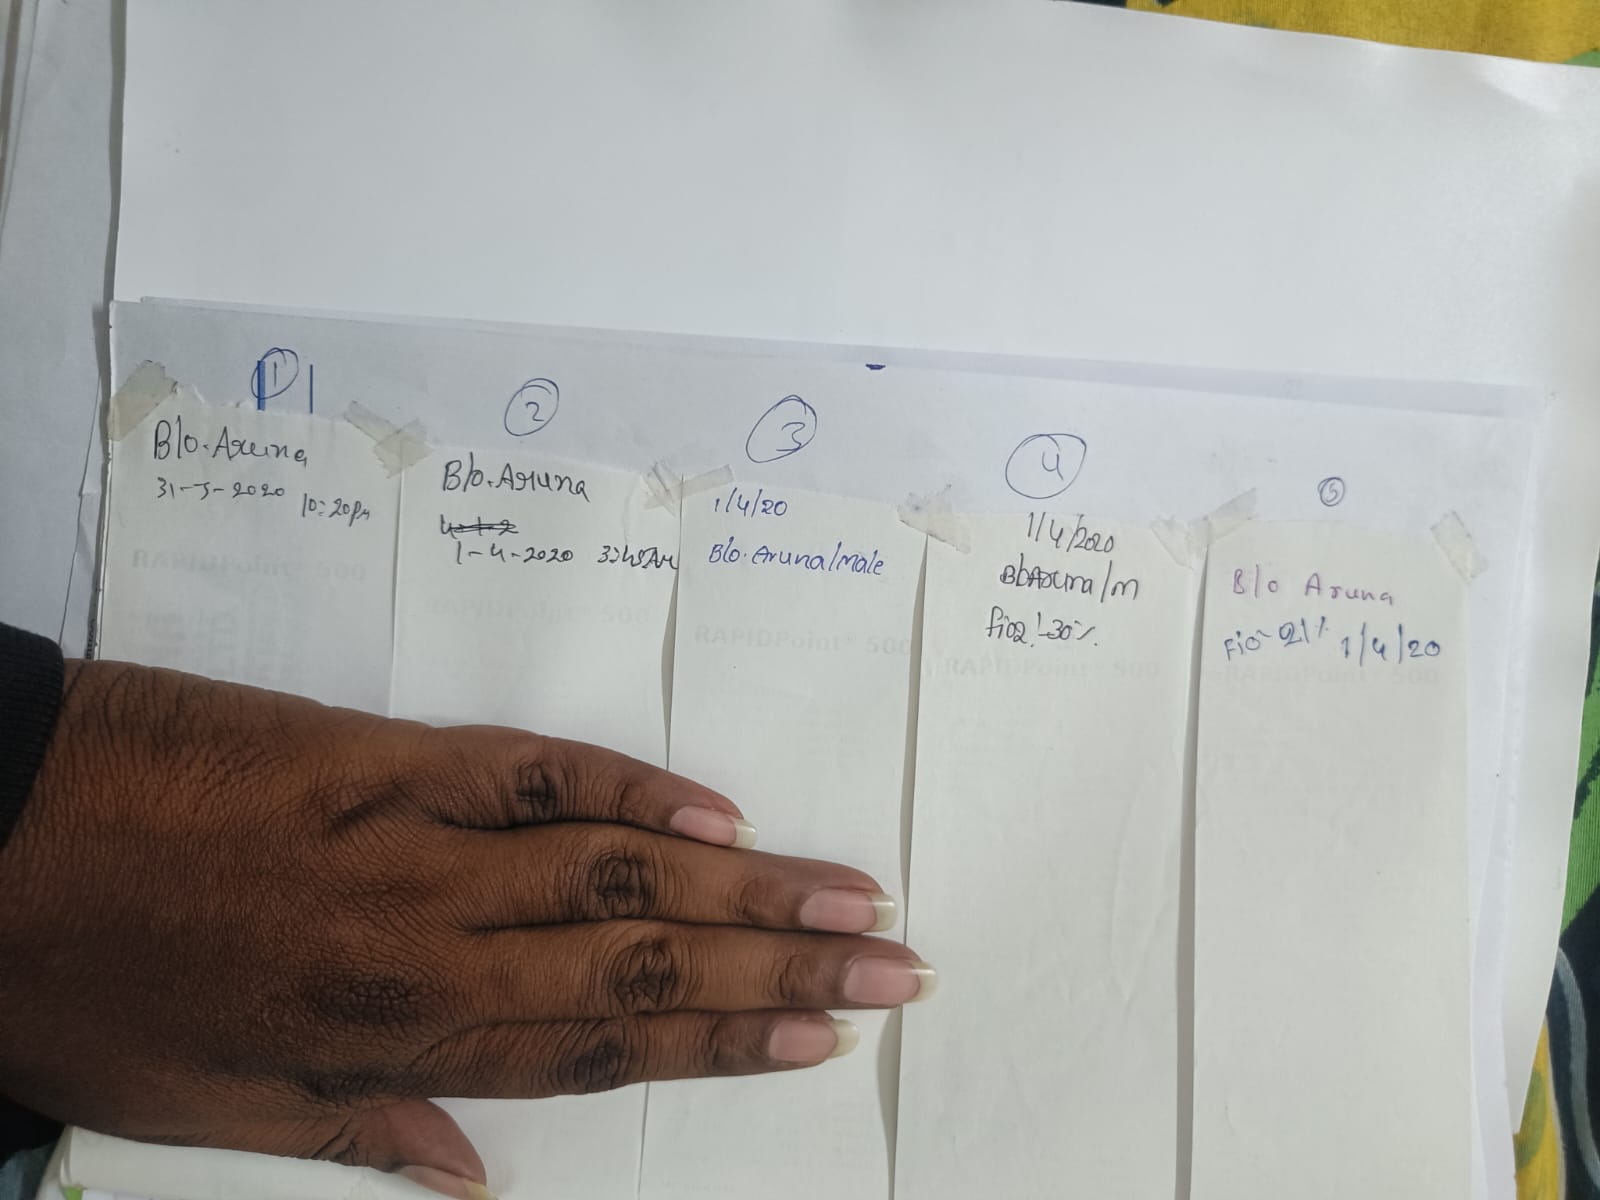 1
B/o. Aruna
31-3-2020 10:20pm
RAPIDPoint® 500
2
B/o. Aruna
1-4-2020 3:45AM
RAPIDPoint® 500
3
1/4/20
B/o. Aruna/Male
RAPIDPoint® 500
4
1/4/2020
B/o Aruna/m
fio2:-30%.
RAPIDPoint® 500
5
B/o Aruna
Fio- 21% 1/4/20
RAPIDPoint® 500